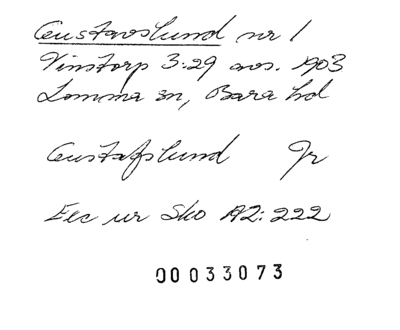 Gustavslund nr 1
Vinstorp 3:29 avs. 1903
Lomma sn, Bara hd
Gustafslund Jr
Exc ur Sko A2:222
00033073